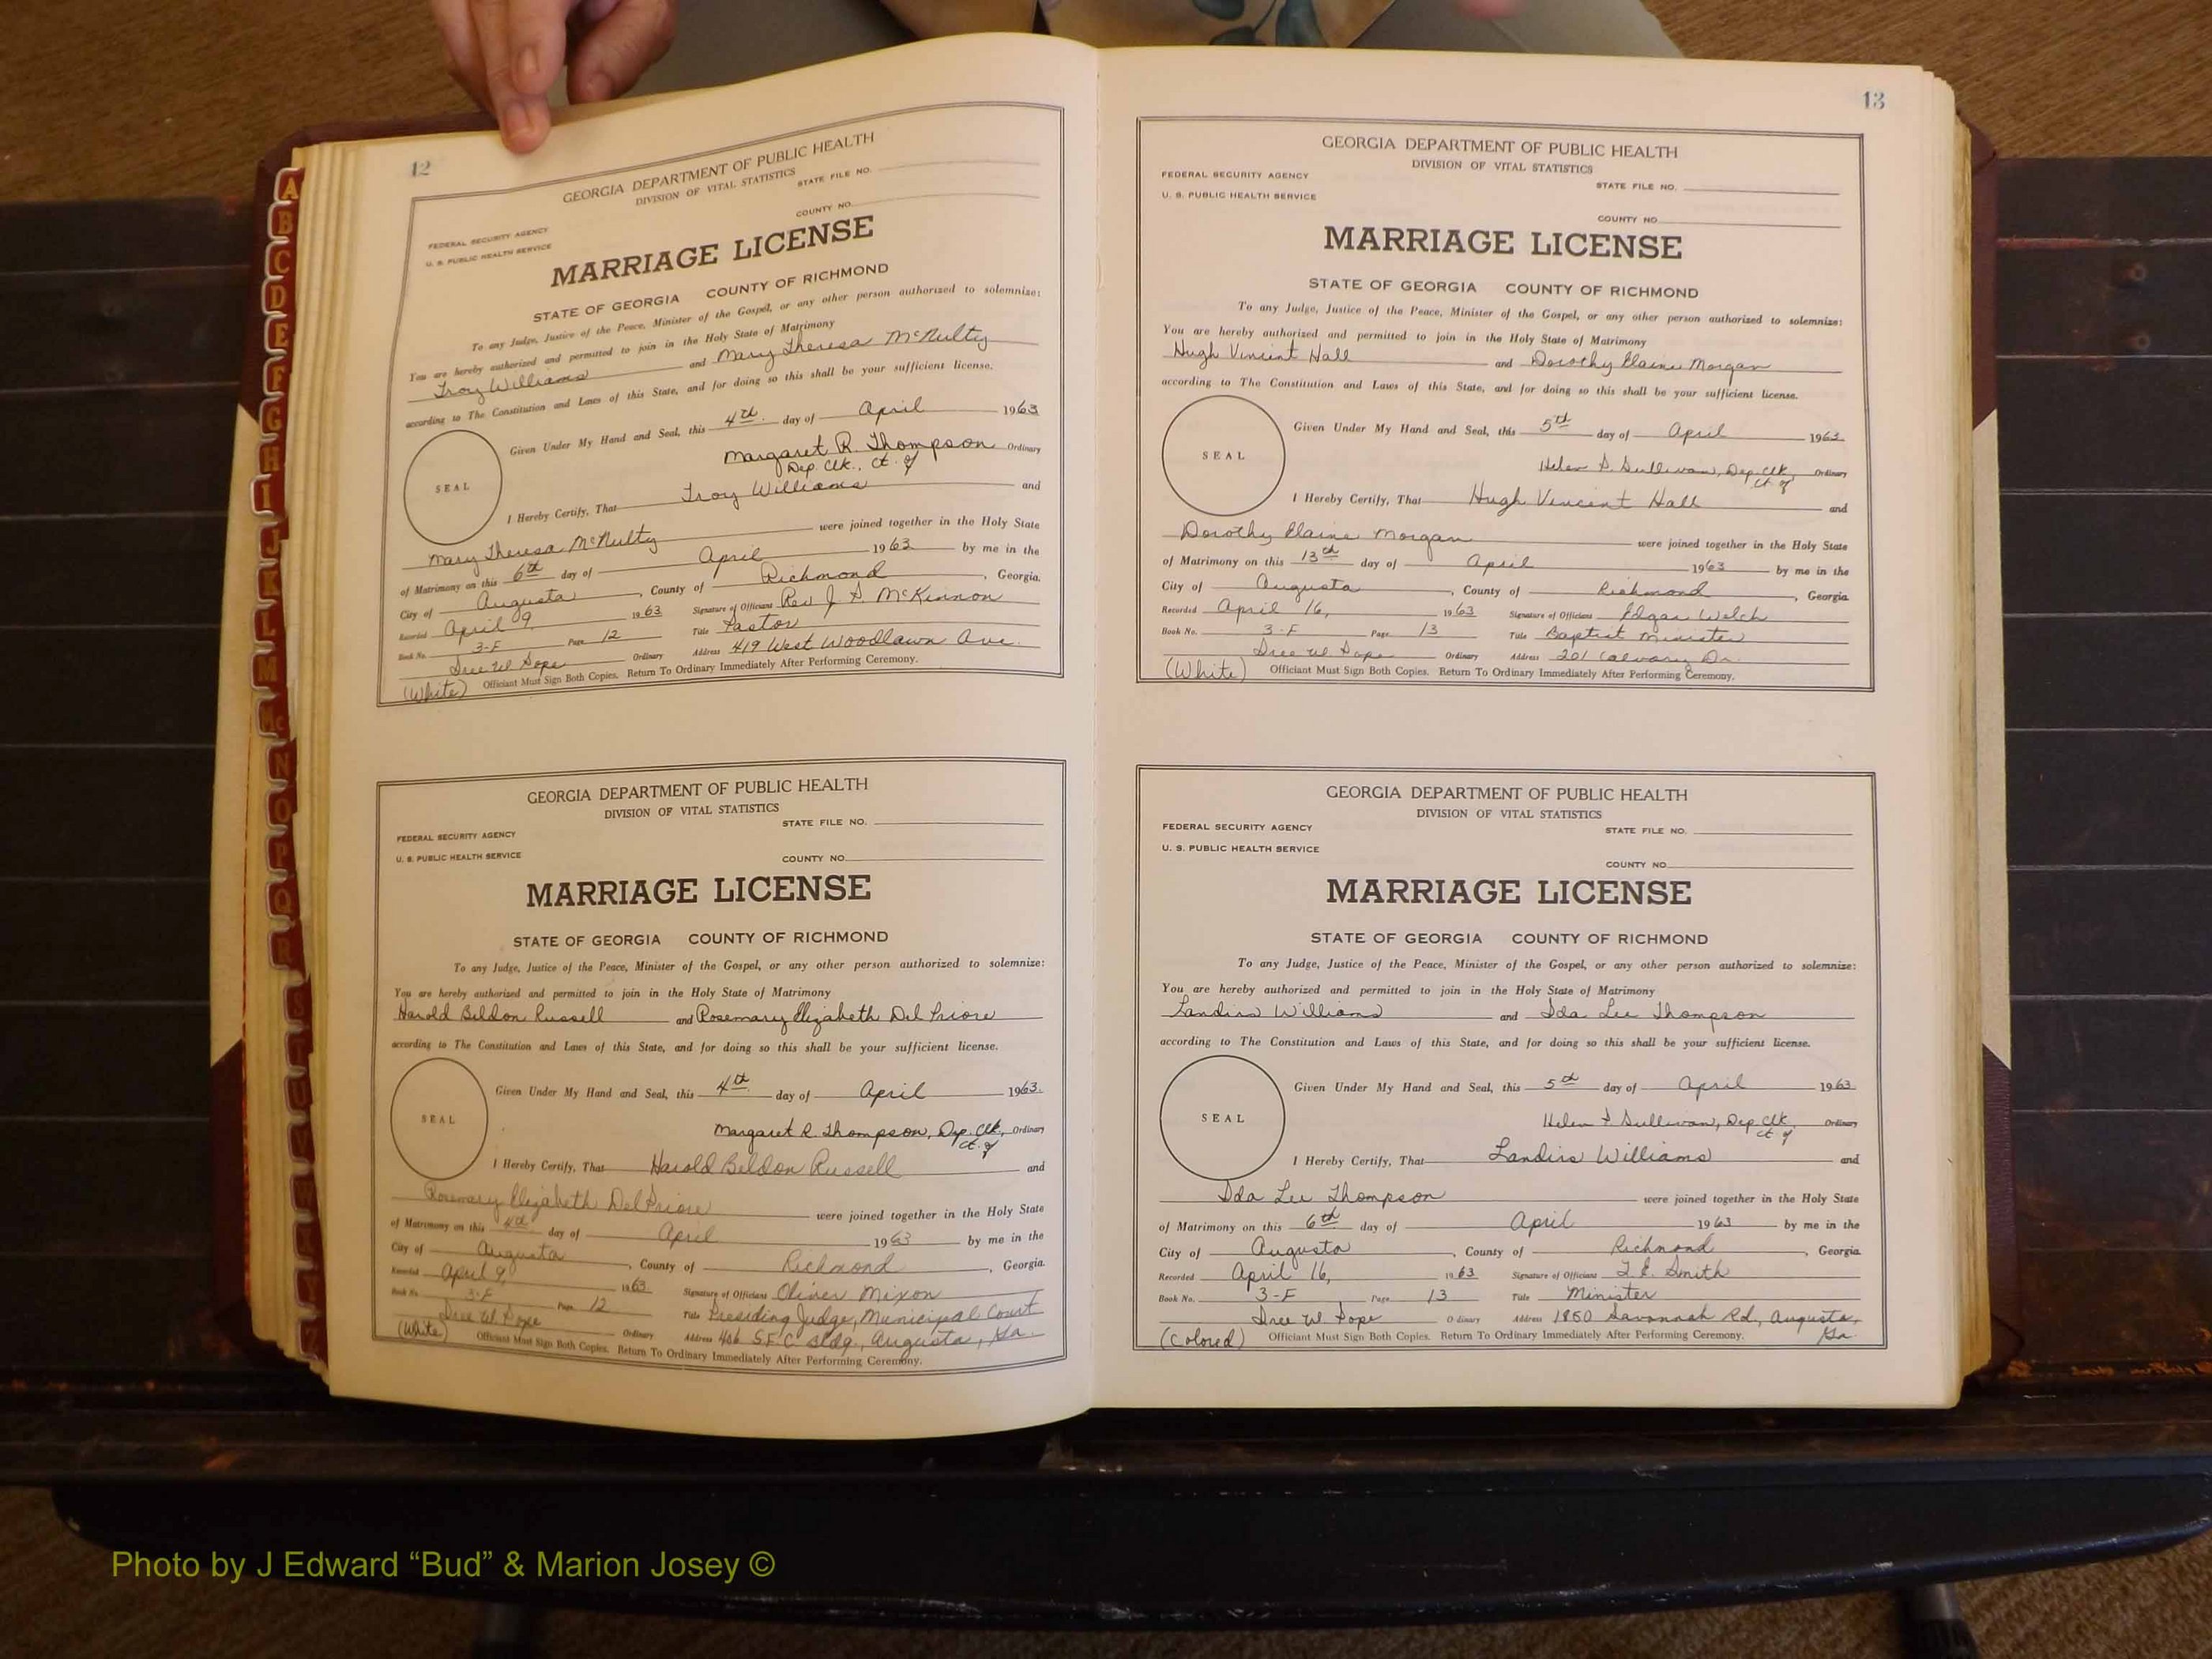 12
GEORGIA DEPARTMENT OF PUBLIC HEALTH
DIVISION OF VITAL STATISTICS
STATE FILE NO.
FEDERAL SECURITY AGENCY
U. S. PUBLIC HEALTH SERVICE
COUNTY NO.
MARRIAGE LICENSE
STATE OF GEORGIA COUNTY OF RICHMOND
To any Judge, Justice of the Peace, Minister of the Gospel, or any other person authorized to solemnize:
You are hereby authorized and permitted to join in the Holy State of Matrimony
Troy Williams and Mary Theresa McNulty
according to The Constitution and Laws of this State, and for doing so this shall be your sufficient license.
Given Under My Hand and Seal, this 4th day of April 1963
Margaret R. Thompson Ordinary
Dep. Clk., Ct. of
SEAL
I Hereby Certify, That Troy Williams and
Mary Theresa McNulty were joined together in the Holy State
of Matrimony on this 6th day of April 1963 by me in the
City of Augusta, County of Richmond, Georgia.
Recorded April 9, 1963 Signature of Officiant Rev J. S. McKinnon
Book No. 3-F Page 12 Title Pastor
Ordinary Address 419 West Woodlawn Ave.
(White) Officiant Must Sign Both Copies. Return To Ordinary Immediately After Performing Ceremony.
GEORGIA DEPARTMENT OF PUBLIC HEALTH
DIVISION OF VITAL STATISTICS
STATE FILE NO.
FEDERAL SECURITY AGENCY
U. S. PUBLIC HEALTH SERVICE
COUNTY NO.
MARRIAGE LICENSE
STATE OF GEORGIA COUNTY OF RICHMOND
To any Judge, Justice of the Peace, Minister of the Gospel, or any other person authorized to solemnize:
You are hereby authorized and permitted to join in the Holy State of Matrimony
Harold Beldon Russell and Rosemary Elizabeth Del Priore
according to The Constitution and Laws of this State, and for doing so this shall be your sufficient license.
Given Under My Hand and Seal, this 4th day of April 1963.
Margaret R. Thompson, Dep. Clk., Ordinary
Ct. of
SEAL
I Hereby Certify, That Harold Beldon Russell and
Rosemary Elizabeth Del Priore were joined together in the Holy State
of Matrimony on this 4th day of April 1963 by me in the
City of Augusta, County of Richmond, Georgia.
Recorded April 9, 1963 Signature of Officiant Oliver Mixon
Book No. 3-F Page 12 Title Presiding Judge, Municipal Court
Ordinary Address 406 S.F.C Bldg., Augusta, Ga.
(White) Officiant Must Sign Both Copies. Return To Ordinary Immediately After Performing Ceremony.
13
GEORGIA DEPARTMENT OF PUBLIC HEALTH
DIVISION OF VITAL STATISTICS
FEDERAL SECURITY AGENCY
STATE FILE NO.
U. S. PUBLIC HEALTH SERVICE
COUNTY NO.
MARRIAGE LICENSE
STATE OF GEORGIA COUNTY OF RICHMOND
To any Judge, Justice of the Peace, Minister of the Gospel, or any other person authorized to solemnize:
You are hereby authorized and permitted to join in the Holy State of Matrimony
Hugh Vincent Hall and Dorothy Elaine Morgan
according to The Constitution and Laws of this State, and for doing so this shall be your sufficient license.
Given Under My Hand and Seal, this 5th day of April 1963.
Helen S. Sullivan, Dep. Clk. Ordinary
Ct. of
SEAL
I Hereby Certify, That Hugh Vincent Hall and
Dorothy Elaine Morgan were joined together in the Holy State
of Matrimony on this 13th day of April 1963 by me in the
City of Augusta, County of Richmond, Georgia
Recorded April 16, 1963 Signature of Officiant Edgar Welch
Book No. 3-F Page 13 Title Baptist Minister
Ordinary Address 201 Calvary Dr.
(White) Officiant Must Sign Both Copies. Return To Ordinary Immediately After Performing Ceremony.
GEORGIA DEPARTMENT OF PUBLIC HEALTH
DIVISION OF VITAL STATISTICS
FEDERAL SECURITY AGENCY
STATE FILE NO.
U. S. PUBLIC HEALTH SERVICE
COUNTY NO.
MARRIAGE LICENSE
STATE OF GEORGIA COUNTY OF RICHMOND
To any Judge, Justice of the Peace, Minister of the Gospel, or any other person authorized to solemnize:
You are hereby authorized and permitted to join in the Holy State of Matrimony
Landirs Williams and Ida Lee Thompson
according to The Constitution and Laws of this State, and for doing so this shall be your sufficient license.
Given Under My Hand and Seal, this 5th day of April 1963
Helen S. Sullivan, Dep Clk. Ordinary
Ct. of
SEAL
I Hereby Certify, That Landirs Williams and
Ida Lee Thompson were joined together in the Holy State
of Matrimony on this 6th day of April 1963 by me in the
City of Augusta, County of Richmond, Georgia
Recorded April 16, 1963 Signature of Officiant Smith
Book No. 3-F Page 13 Title Minister
Ordinary Address 1850 Savannah Rd, Augusta,
Ga.
(Colored) Officiant Must Sign Both Copies. Return To Ordinary Immediately After Performing Ceremony.
A
B
C
D
E
F
G
H
I
J
K
L
M
Mc
N
O
P
Q
R
S
T
U
Photo by J Edward “Bud” & Marion Josey ©